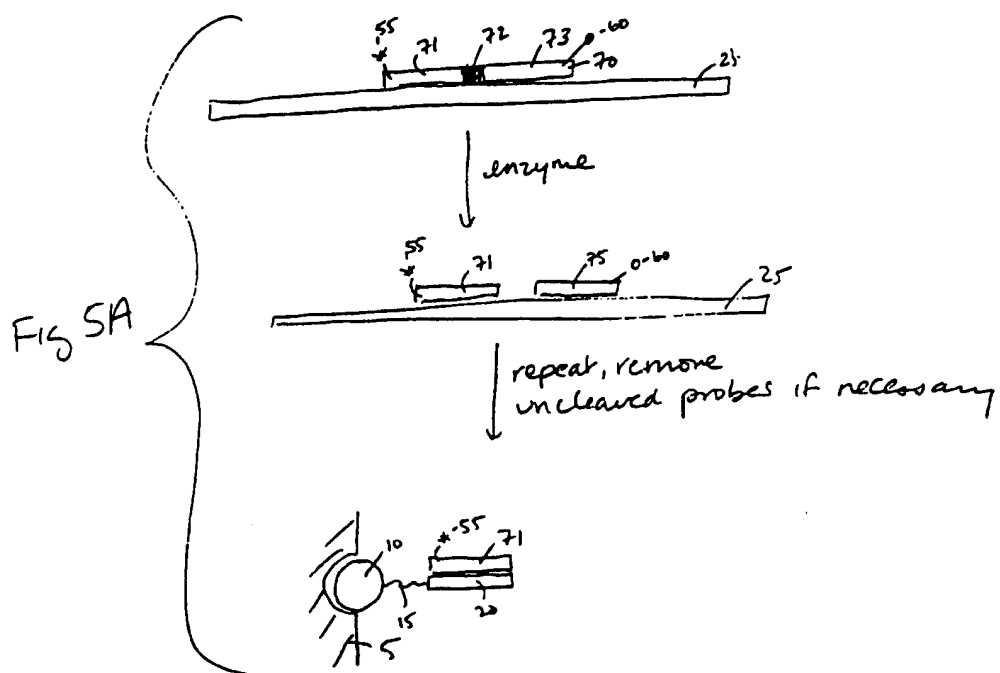 55 71 72 73 60 70 25
enzyme
55 71 75 60 25
Fig 5A
repeat, remove
uncleaved probes if necessary
10 55 71
15 20
5